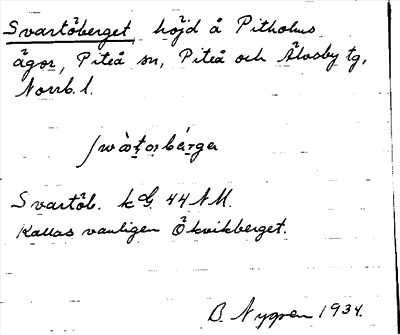 Svartöberget, höjd å Pitholms
ägor, Piteå sn, Piteå och Älvsby tg,
Norrb. l.
Svartöb. kG. 44 NM.
Kallas vanligen Ökvikberget.
B. Nygren 1934.